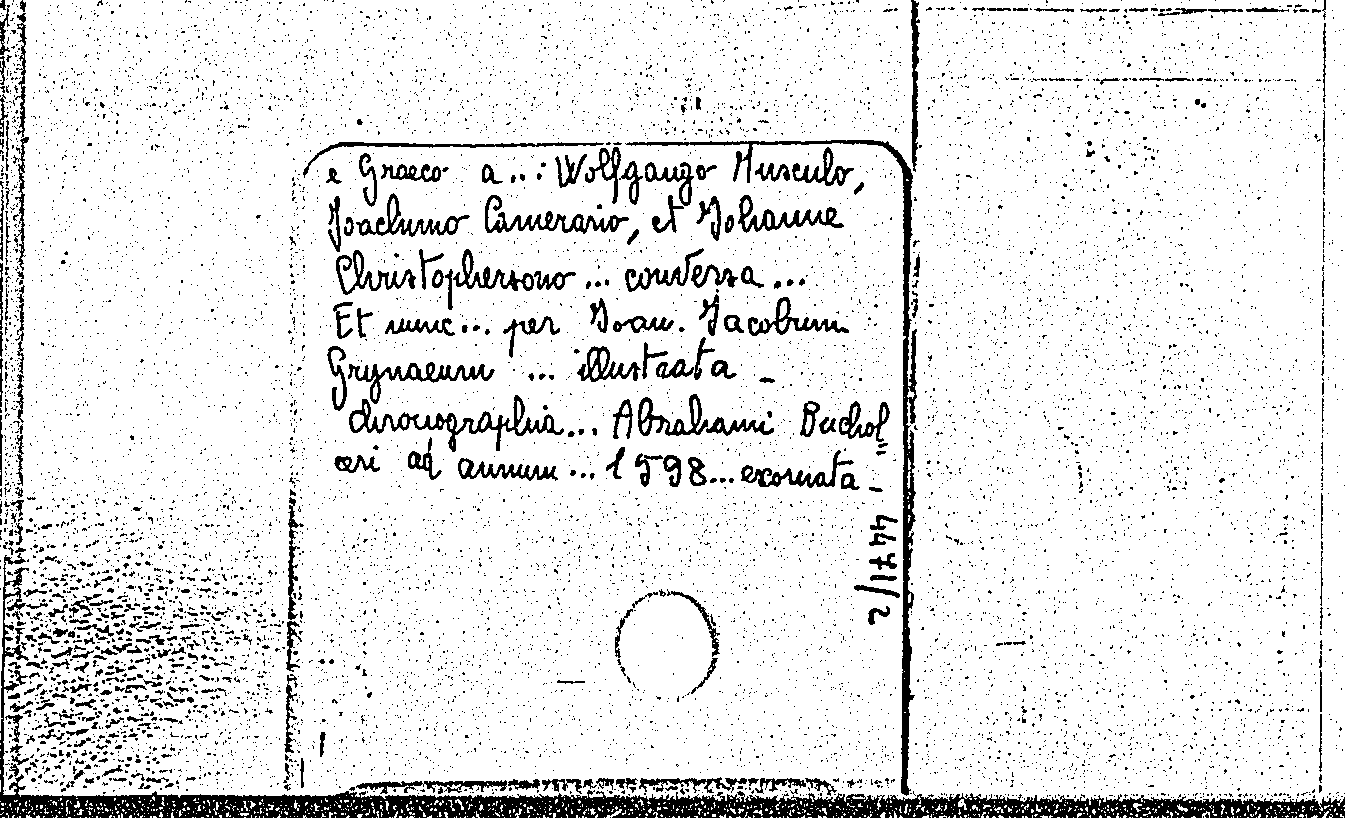 e Graeco a...: Wolfgango Musculo,
Joachimo Camerario, et Johanne
Christophersono ... conversa ...
Et nunc... per Joan. Jacobum
Grynaeum ... illustrata _
chronographia... Abrahami Buchol"
ceri ad annum ... 1598... exornata _
4471/2